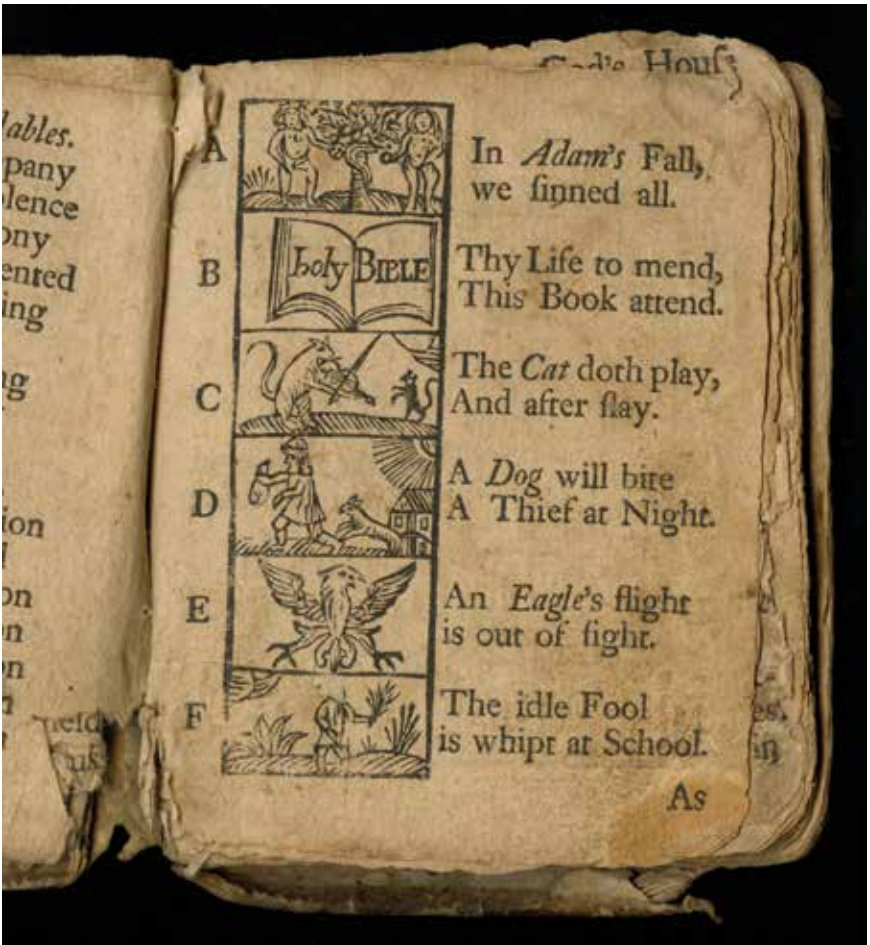 lables.
pany
lence
ony
ented
ing
ng
ion
on
on
on
God's Houſ
A
In Adam's Fall,
we ſinned all.
B
holy BIBLE
Thy Life to mend,
This Book attend.
C
The Cat doth play,
And after ſlay.
D
A Dog will bite
A Thief at Night.
E
An Eagle's flight
is out of ſight.
F
The idle Fool
is whipt at School.
As